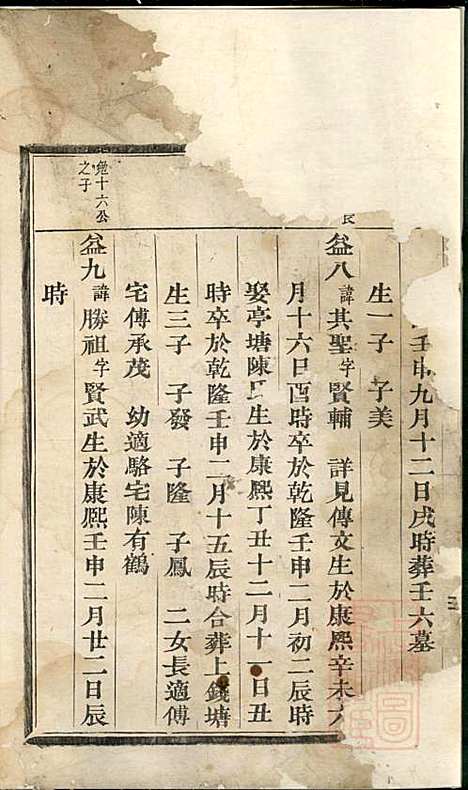 壬申九月十二日戌時葬壬六墓
生一子　子美
益八諱其聖字賢輔　詳見傳文生於康熙辛未六
月十六日酉時卒於乾隆壬申二月初二辰時
娶亭塘陳氏生於康熙丁丑十二月十一日丑
時卒於乾隆壬申二月十五辰時合葬上錢塘
生三子　子發　子隆　子鳳　二女長適傅
宅傳承茂　幼適駱宅陳有鶴
十六公
之子
益九諱勝祖字賢武生於康熙壬申二月廿二日辰
時